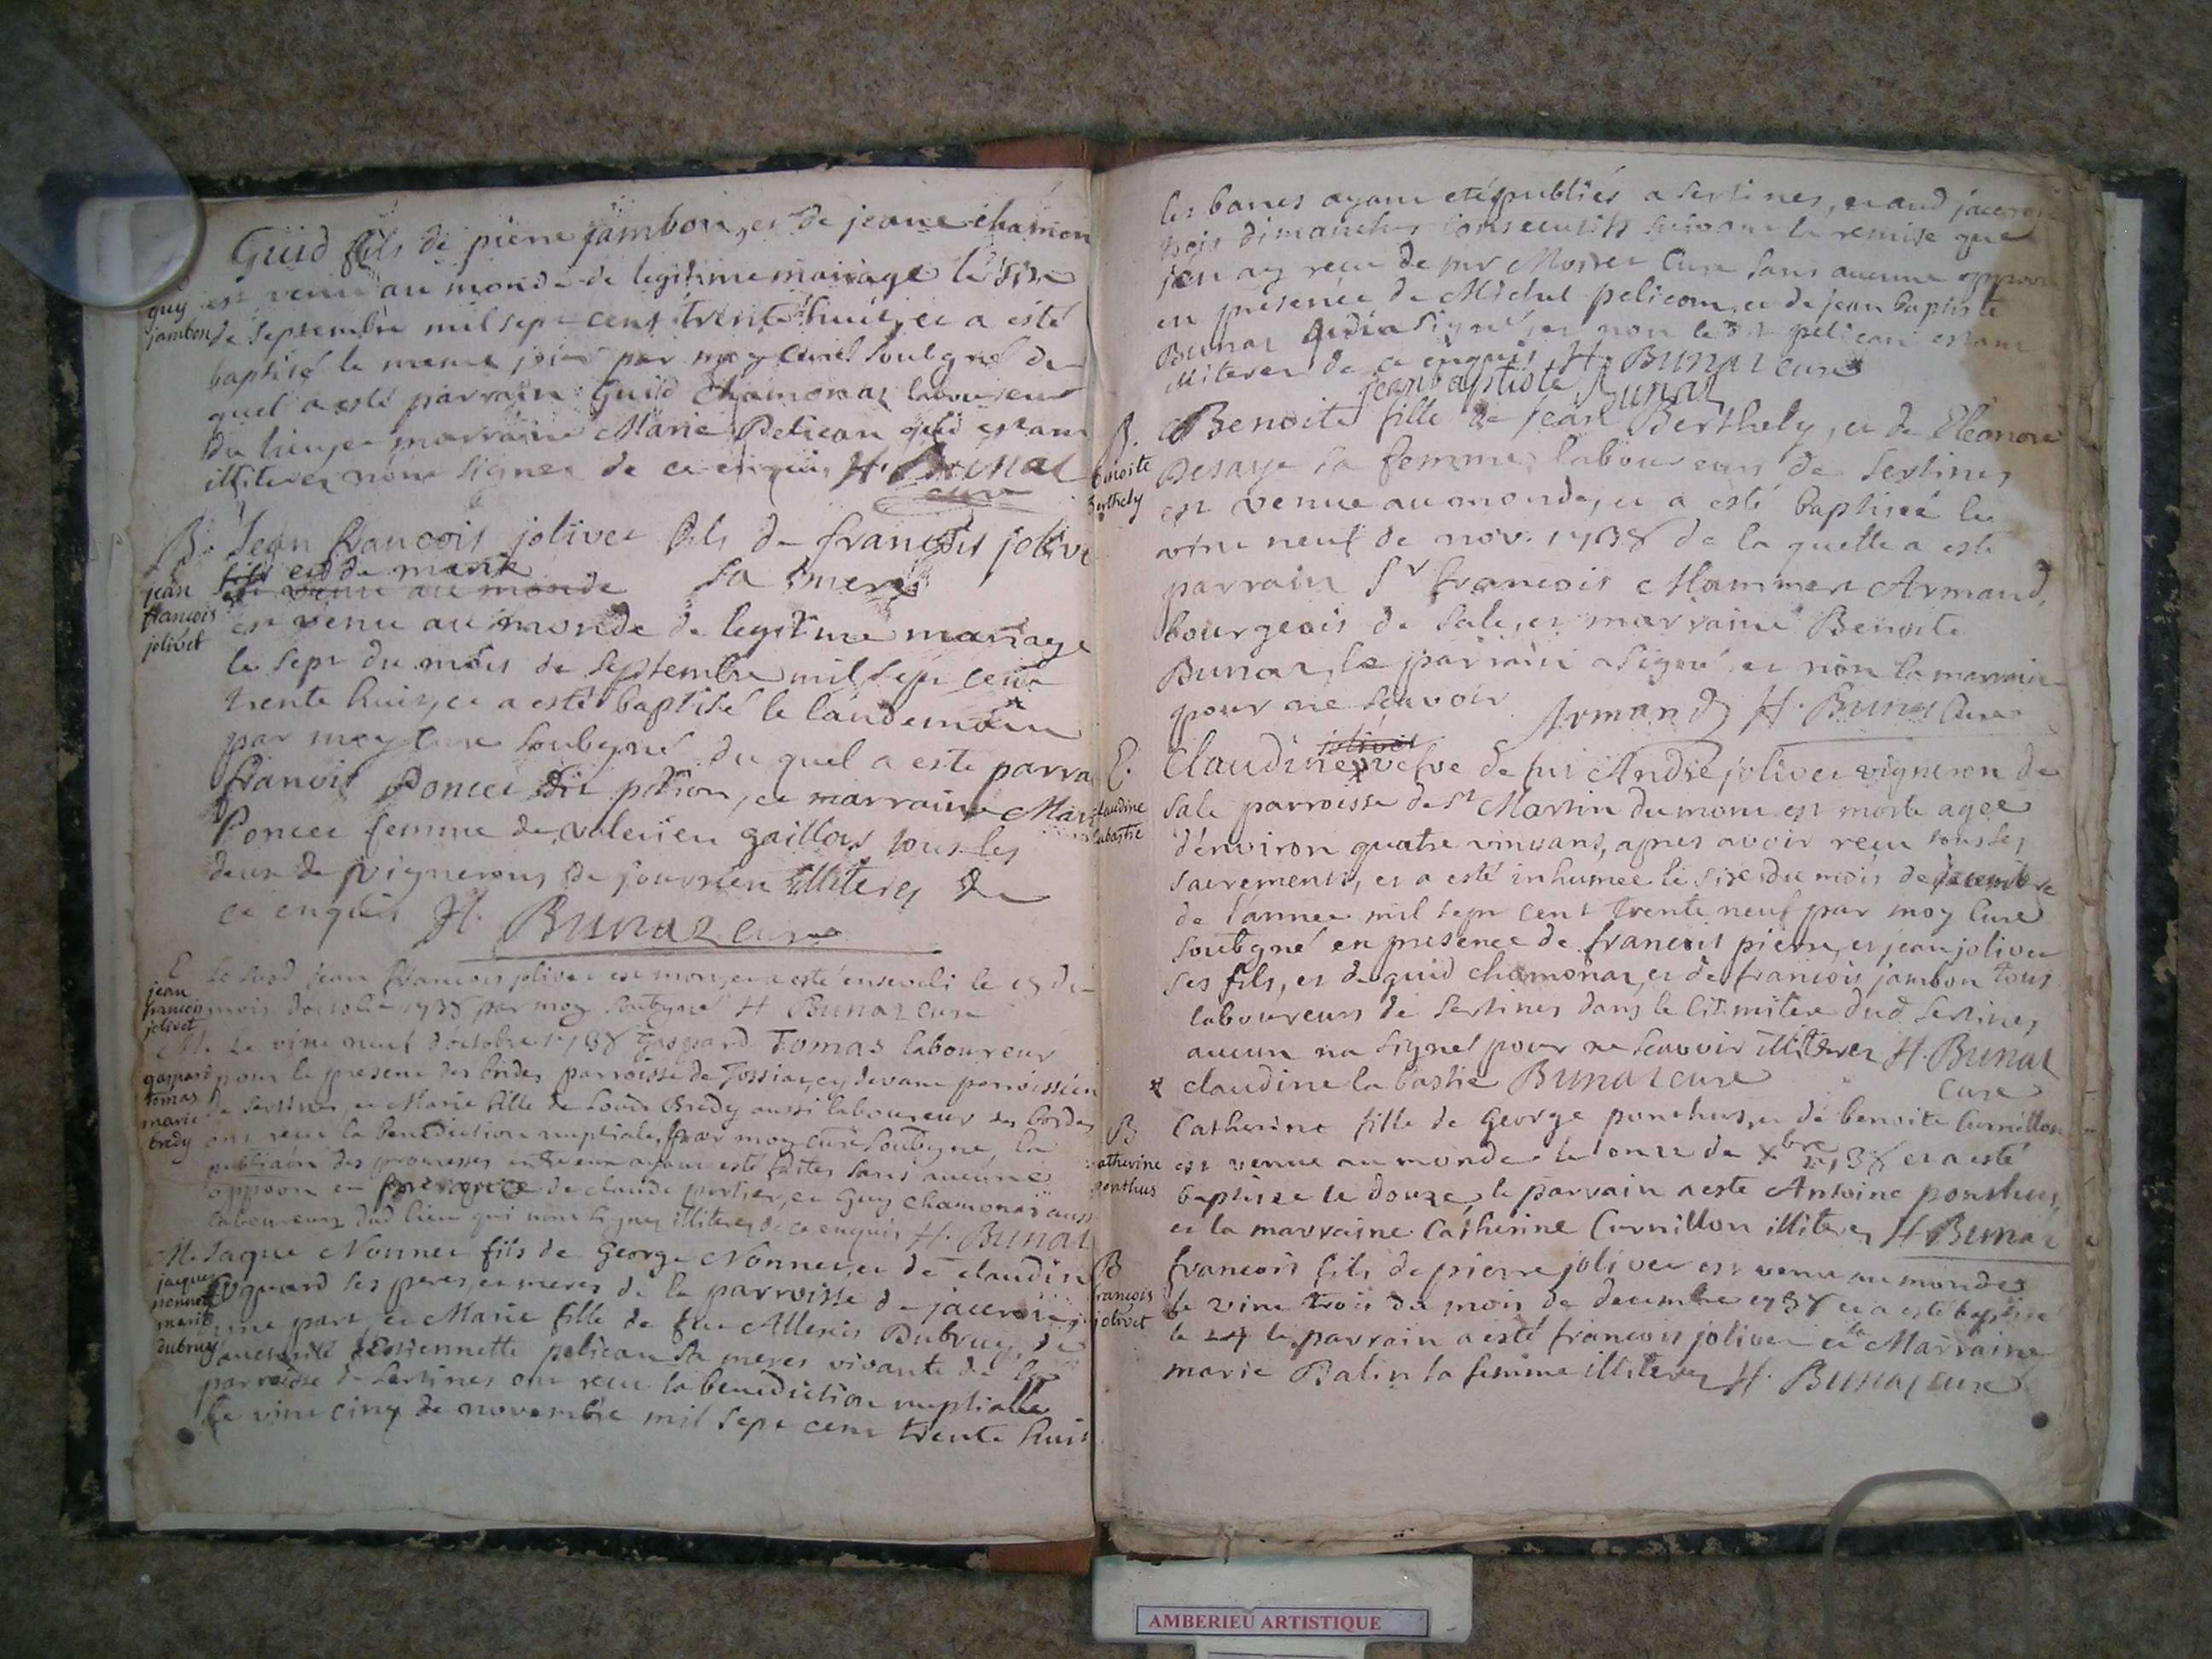 Guid fils de pierre jambon, et de jeane chamon
guy jambon
est venu au monde de legitime mariage le six
de septembre mil sept cent trente huit, et a esté
baptisé le meme jour par moy curé soubsigné du
quel a esté parrain Guid Chamonaz laboureur
du lieu, et marraine Marie Pelican qui estant
illiteres n'ont signer de ce enquis H. Bunaz
cure
B. Jean francois jolivet fils de francois jolivet
jean francois jolivet
et de marie
est venu au monde sa mere
est venu au monde de legitime mariage
le sept du mois de septembre mil sept cent
trente huit, et a esté baptisé le landemain
par moy cure soubsigné du quel a este parra
franois Poncet dit, et marraine Mar
Poncet femme de valerien gaillot tous les
deux de vignerons de journien illiteres de
ce enquis H. Bunaz cure
E
jean francois jolivet
Le susd jean francois jolivet est mort, et a esté enseveli le 15 du
mois d'octobre 1738 par moy soubsigné H Bunaz cure
M. Le vint neuf d'octobre 1738 Gaspard Tomas laboureur
gaspard tomas marie bredy
pour le present des bordes parroisse de Tossiat, cy devant parroissien
de sertines, et Marie fille de Louis Bredy aussi laboureur des bordes
ont receu la benediction nuptiale par moy curé soubsigne, la
des promesses entre eux ayant esté faites sans aucune
oppoon en presence de claude portier, et Guy chamonas auss
laboureurs dud lieu qui n'ont signer illiteres de ce enquis H. Bunaz
M. Jaque Nonnet fils de George Nonnet, et de claudine
jacques nonnet marie dubruy
ses peres, et meres de la parroisse de jaceron
d'une part, et Marie fille de feu Allexis Dubruy, de
l'autorité d'Estiennette pelican sa mere vivante de la
parroisse de Sertines ont receu la benediction nuptialle
le vint cinq de novembre mil sept cent trente huit
les banes ayant etés publiés a sertines, et aud jaceron
trois dimanches consecutifs suivant la remise que
j'en ay receu de mr Mosnet cure sans aucune oppoon
en presence de Michel pelicam, et de jean baptiste
Bunaz qui a signé, et non led pelican estant
illiteres de ce enquis H. Bunaz cure
jean baptiste Bunaz
B.
benoite Berthely
Benoite fille de Jean Berthely, et de Eleonore
Desaye sa femme laboureurs de Sertines
est venue au monde, et a esté baptisée le
vint neuf de nov. 1738 de la quelle a esté
parrain Sr francois Mammert Armand,
bourgeois de Sale, et marraine Benoite
Bunaz, le parrain a signé et non la marraine
pour ne scavoir Armand H. Bunaz Cure
E.
claudine labastie
jolivet
Claudine x vefve de feu André jolivet vigneron de
Sale parroisse de st Martin du mont est morte agée
d'environ quatre vint ans, apres avoir receu tous les
sacrements, et a esté inhumée le six du mois de decembre
de l'annee mil sept cent trente neuf par moy Cure
soubsigné en presence de francois pierre, et jean jolivet
ses fils, et de guid chamonaz, et de francois jambon tous
laboureurs de Sertines dans le cimitere dud Sertines
aucun na signet pour ne scavoir illiteres H. Bunaz
Cure
x claudine la bastie Bunaz cure
B
catherine ponthus
Catherine fille de George ponthus, et de benoite Curnillon
est venue au monde le onze de Xbre 1738 et a esté
baptisée le douze, le parrain a este Antoine ponthus,
et la marraine Catherine Curnillon illiteres H Bunaz
B
francois jolivet
francois fils de pierre jolivet est venu au monde
le vint trois du mois de decembre 1738 et a esté baptisé
le 24 le parrain a esté francois jolivet et la Marraine
marie Balin sa femme illiteres H. Bunaz cure
AMBERIEU ARTISTIQUE